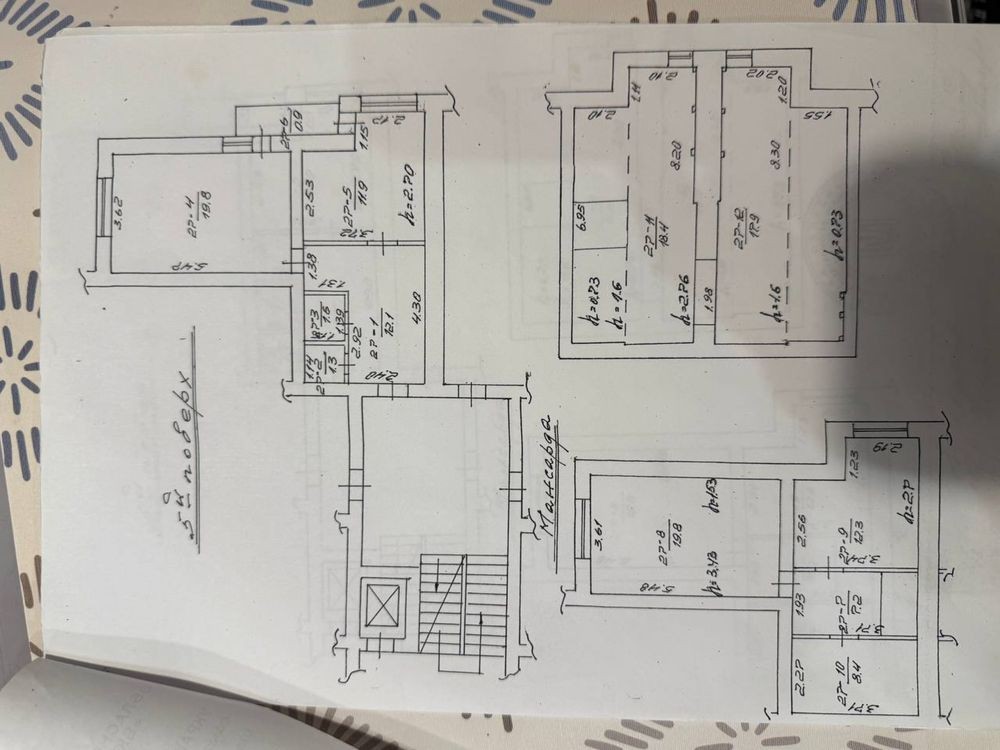 5й поверх
27-4
19.8
3.62
5.47
27-6
0.9
1.15
2.70
2.53
27-5
11.9
h=2.70
1.38
27-3
1.6
1.39
1.14
27-2
1.3
2.92
27-1
12.1
4.30
2.40
Мансарда
2.10
1.11
2.10
8.20
6.95
27-11
18.4
h=0.73
h=1.6
h=2.76
2.02
1.20
1.55
8.30
27-12
17.9
h=0.73
h=1.6
1.98
3.61
27-8
19.8
h=1.53
5.48
h=3.43
1.23
2.19
2.56
27-9
12.3
h=2.7
1.93
27-7
7.2
2.27
27-10
8.4
3.71